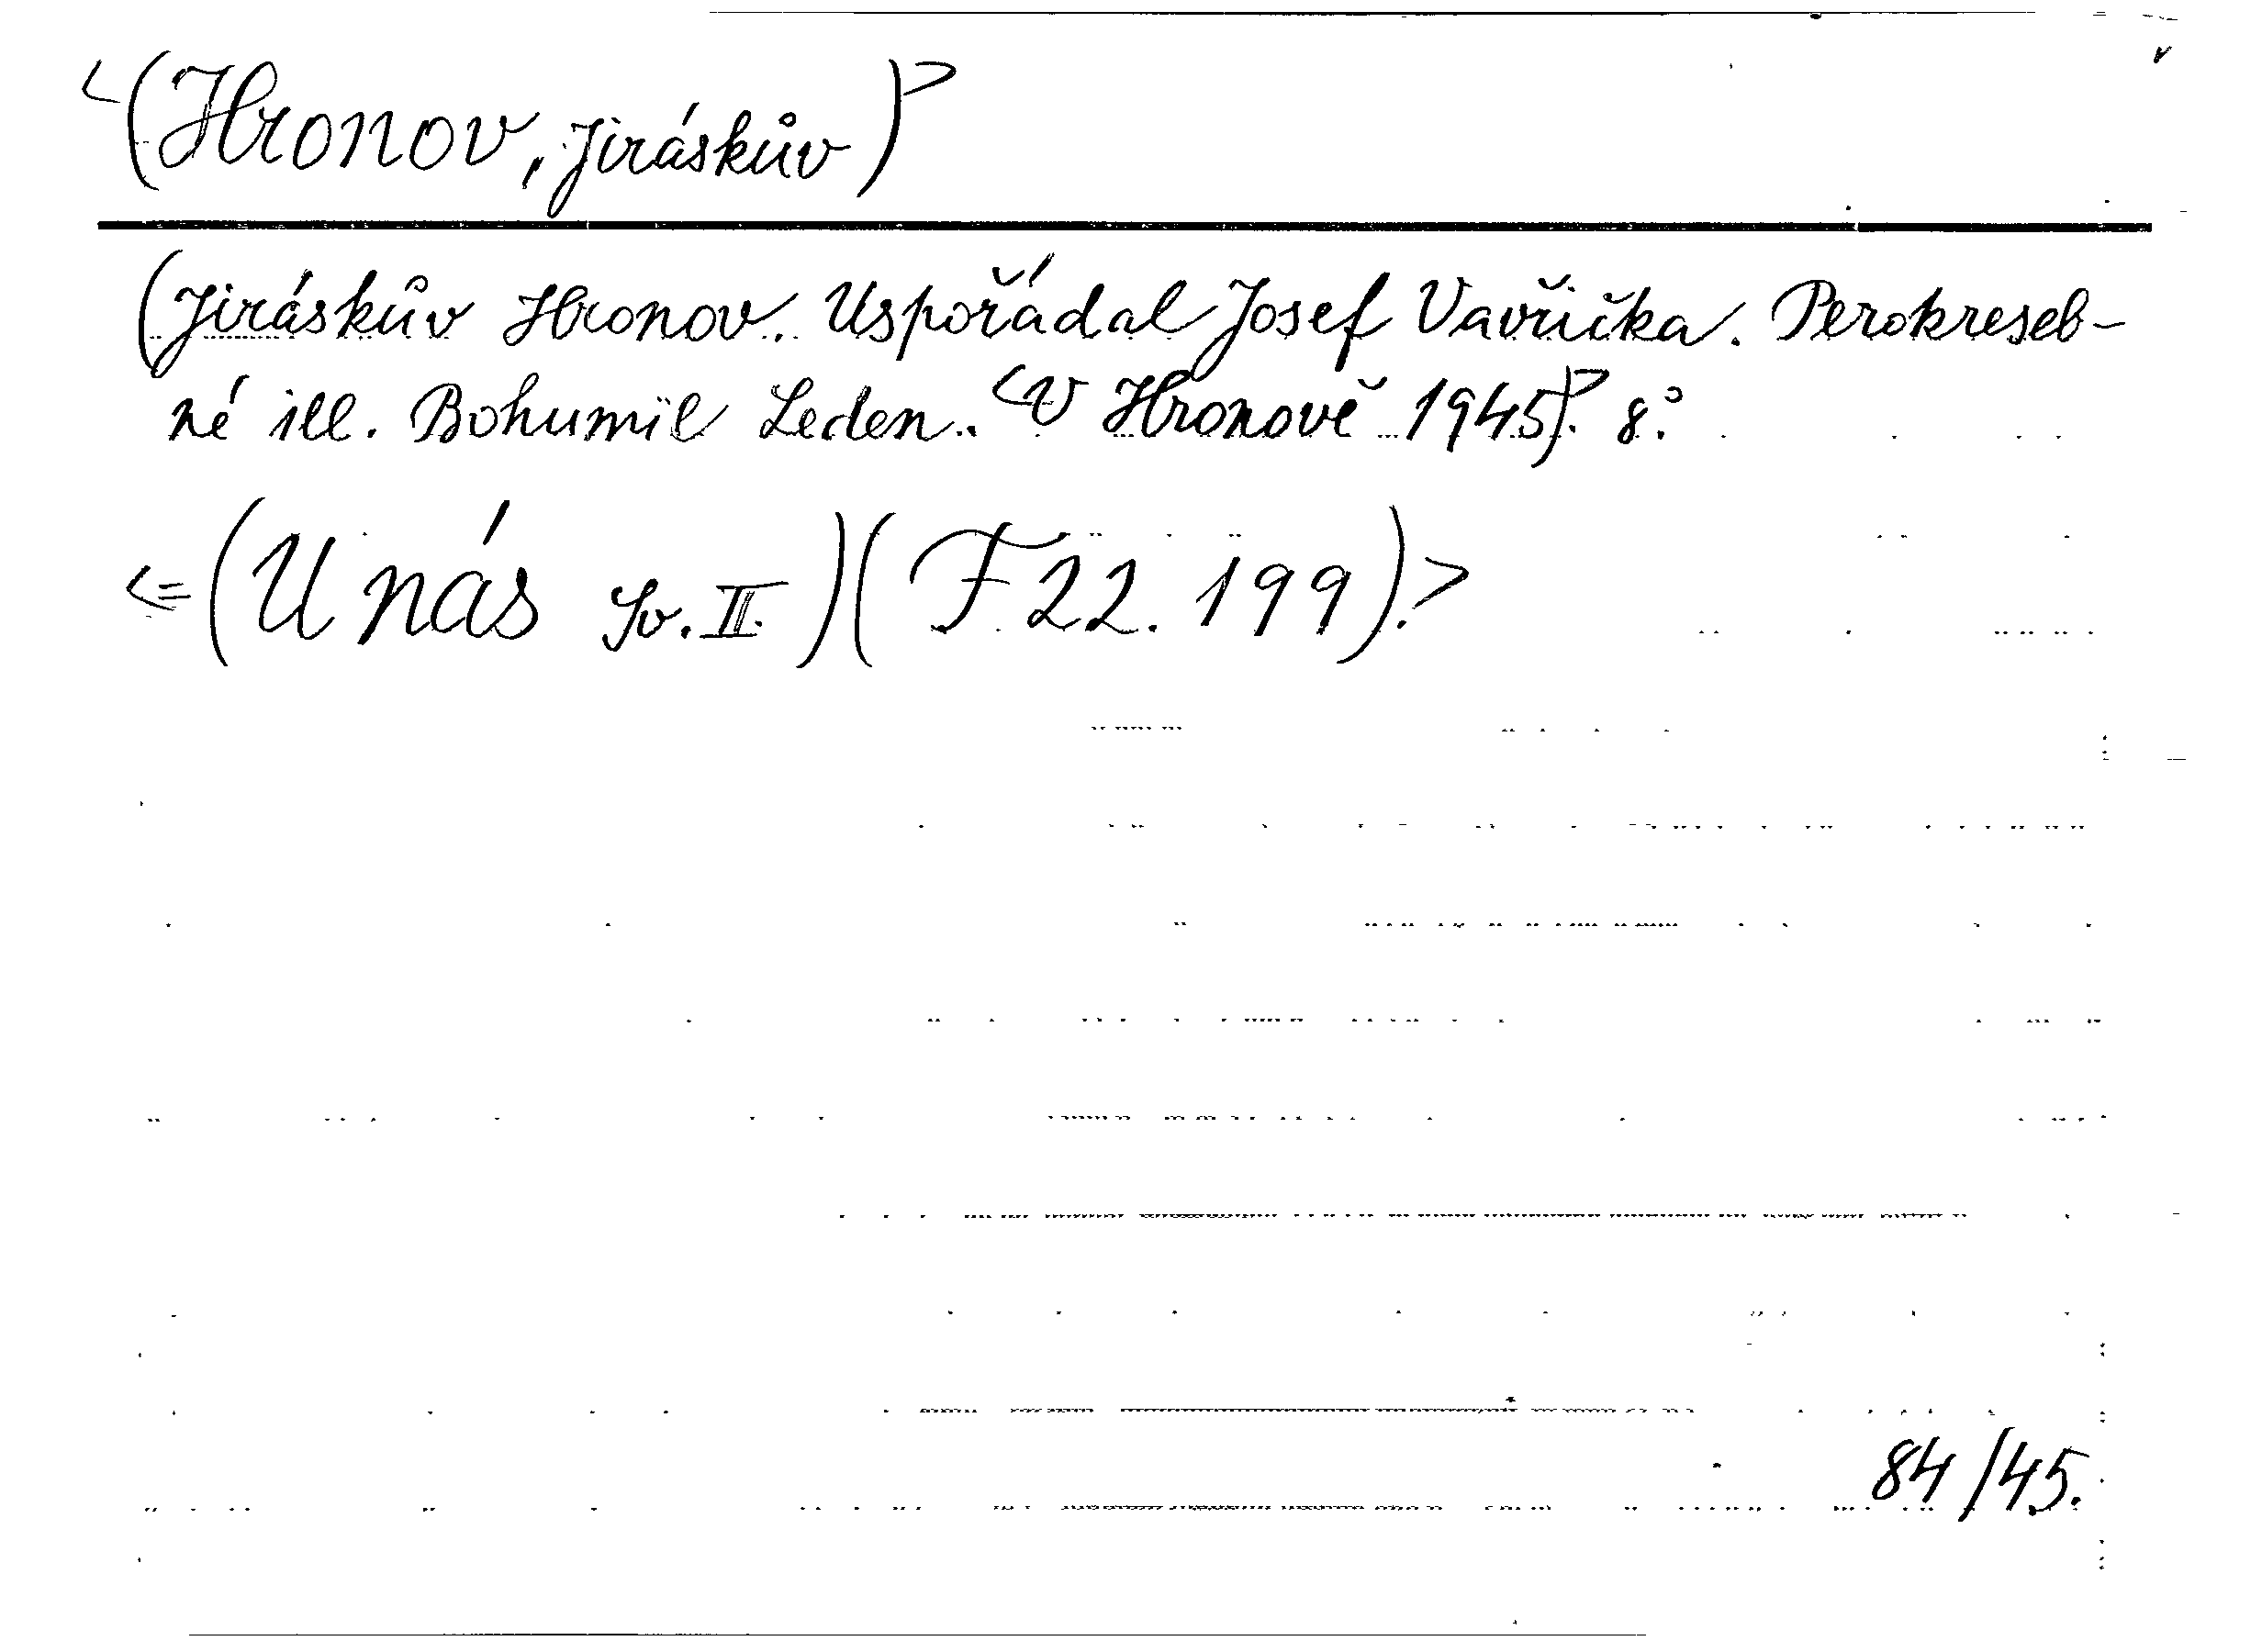 <(Hronov, Jiráskův)>
(Jiráskův Hronov. Uspořádal Josef Vavřička. Perokreseb-
né ill. Bohumil Leden. <V Hronově 1945)>. 8°.
<=(U nás Sv. II.)(F 22. 199).>
84/45.